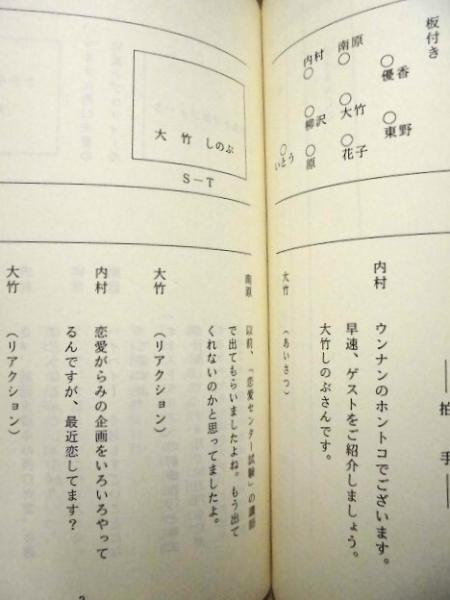 板付き
優香
○
東野
○
南原
○
大竹
○
花子
○
内村
○
柳沢
○
原
○
いとう
○
――拍 手――
内村 ウンナンのホントコでございます。
早速、ゲストをご紹介しましょう。
大竹しのぶさんです。
大竹 (あいさつ)
大 竹 しのぶ
S－T
南原 以前、「恋愛センター試験」の講師
で出てもらいましたよね。もう出て
くれないのかと思ってましたよ。
大竹 (リアクション)
内村 恋愛がらみの企画をいろいろやって
るんですが、最近恋してます？
大竹 (リアクション)